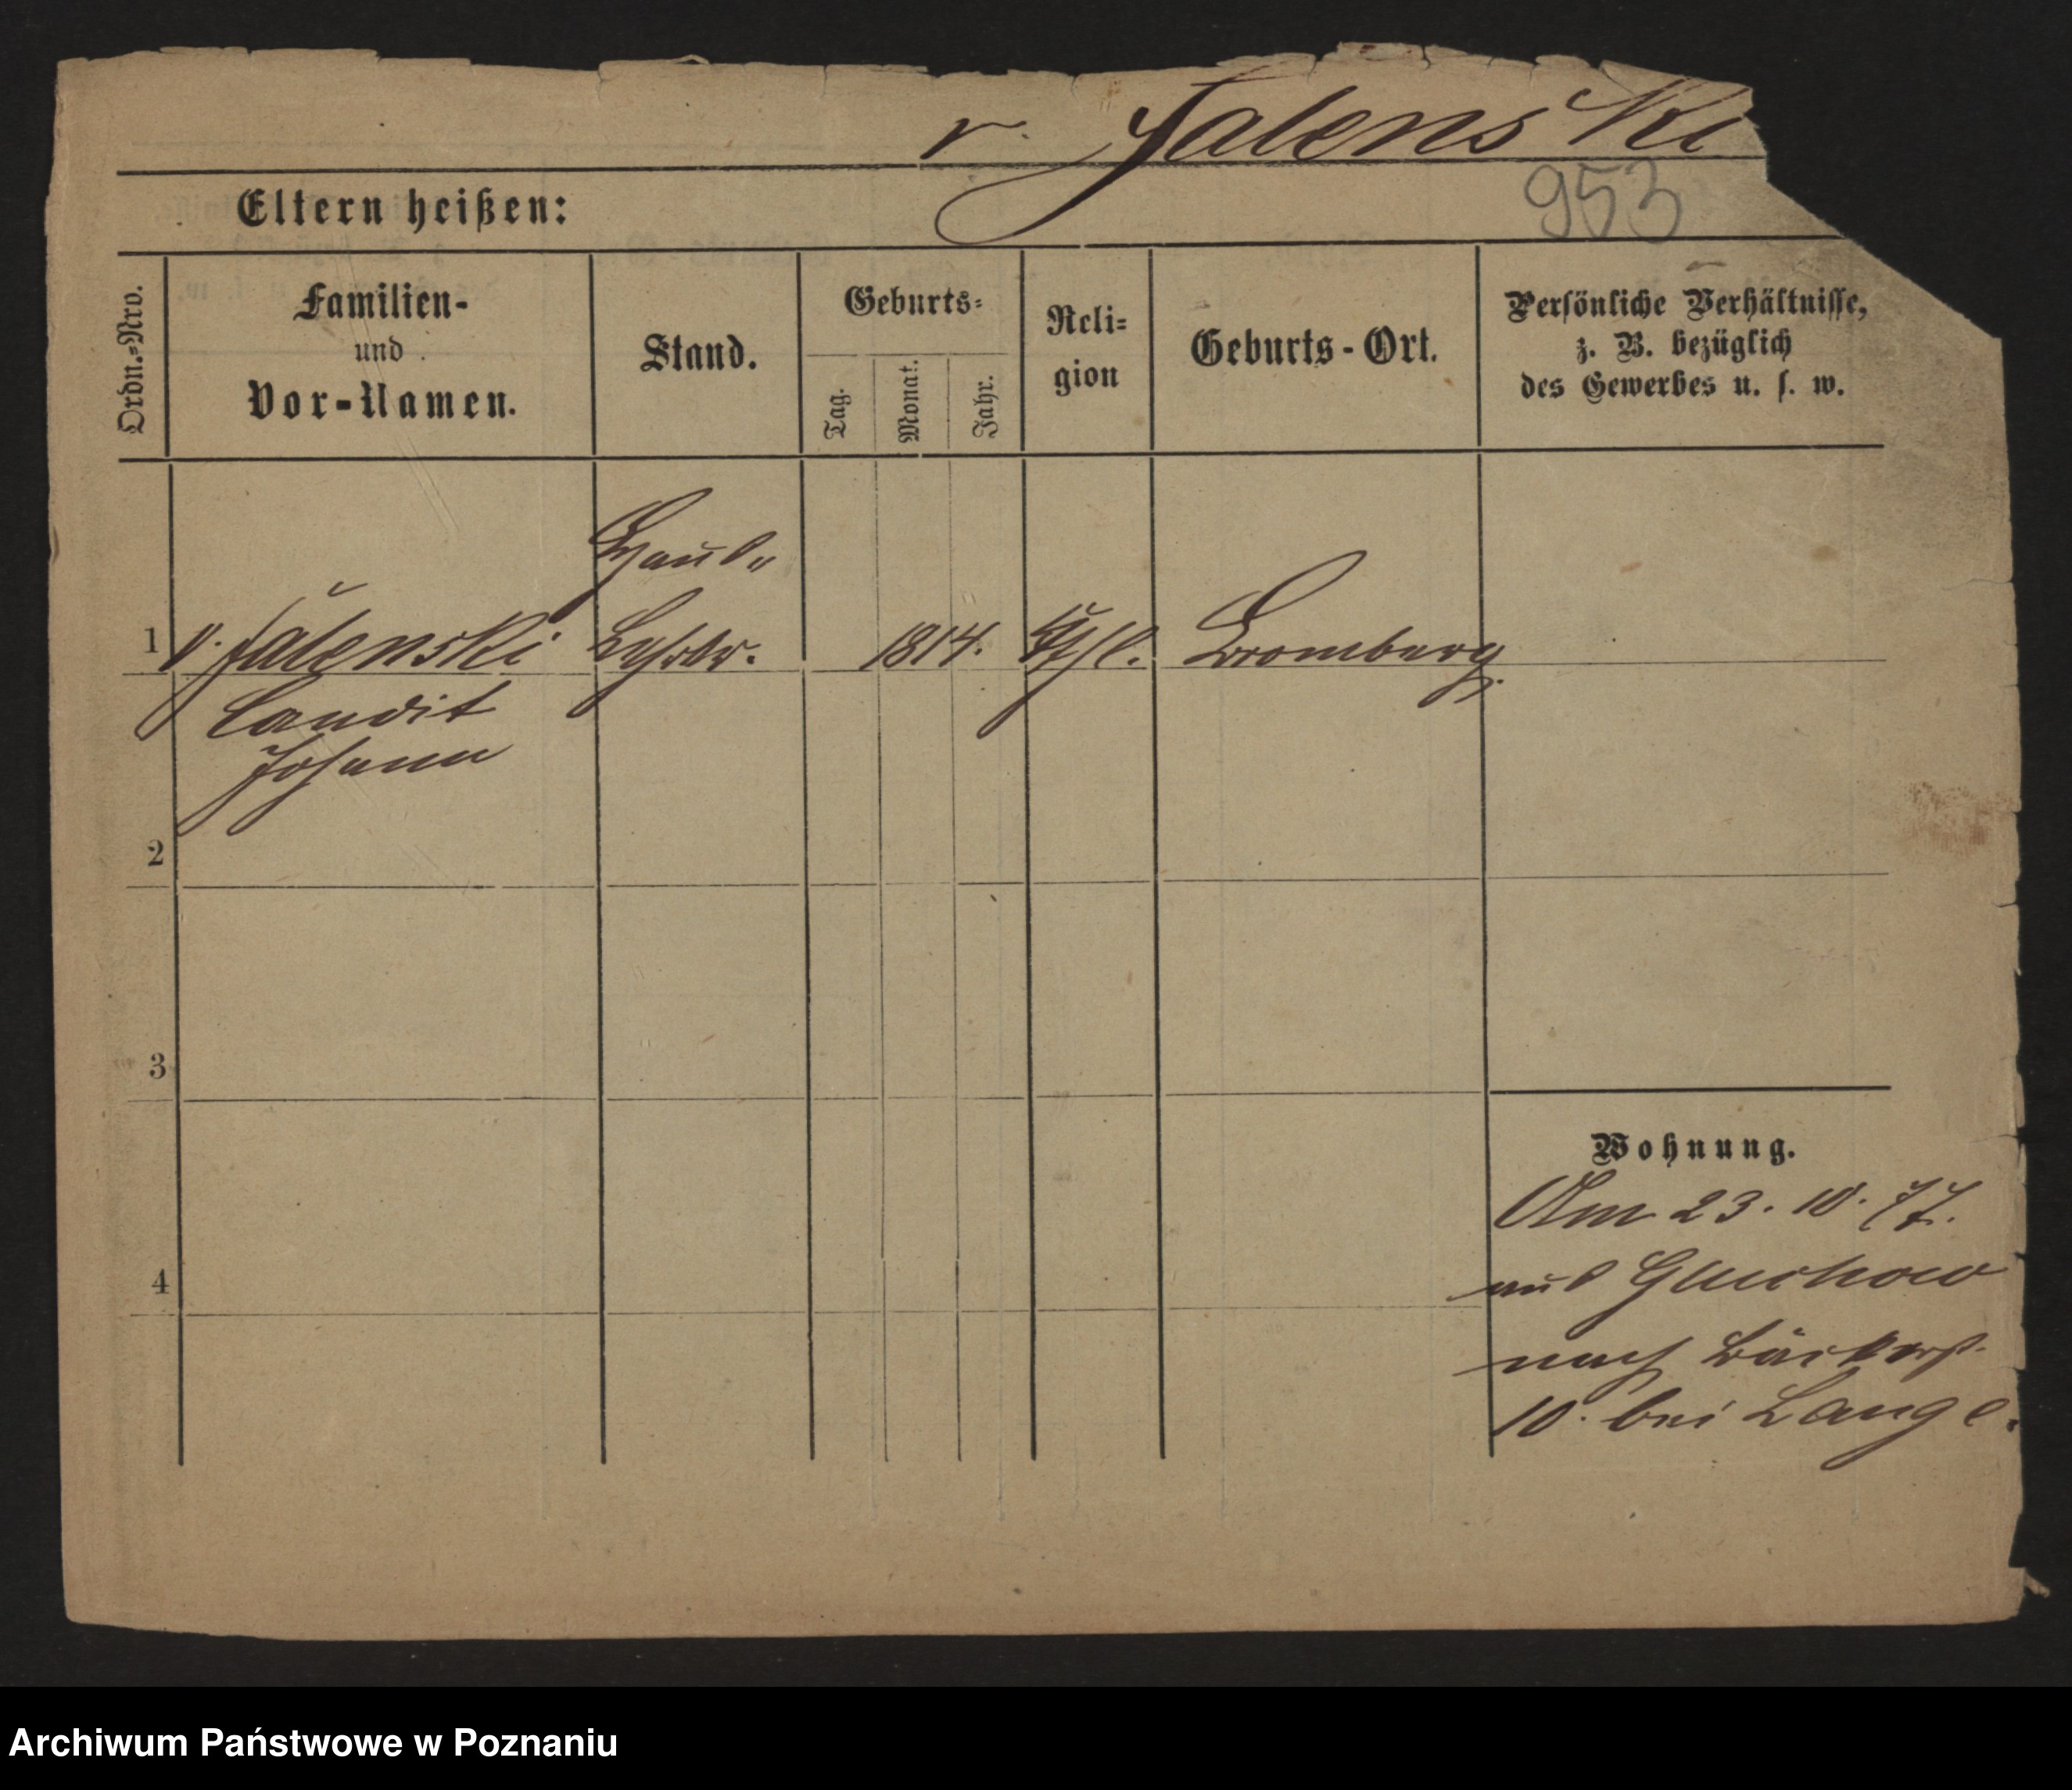 v. Jalenski
953
Eltern heißen:
Ordn.-Nro.
Familien-
und
Vor-Namen.
Stand.
Geburts-
Tag.
Monat.
Jahr.
Reli-
gion
Geburts-Ort.
Persönliche Verhältnisse,
z. B. bezüglich
des Gewerbes u. s. w.
Haus-
1 v. Jalenski Lehrer. 1814. Bromberg.
Candit
Johann
2
3
Wohnung.
Am 23. 10. 77.
4
aus Gluchowo
nach Bäckerst.
10. bei Lange.
Archiwum Państwowe w Poznaniu